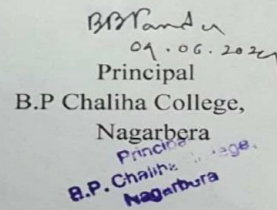 04.06.2024
Principal
B.P Chaliha College,
Nagarbera
Principal
B.P. Chaliha College.
Nagarbera